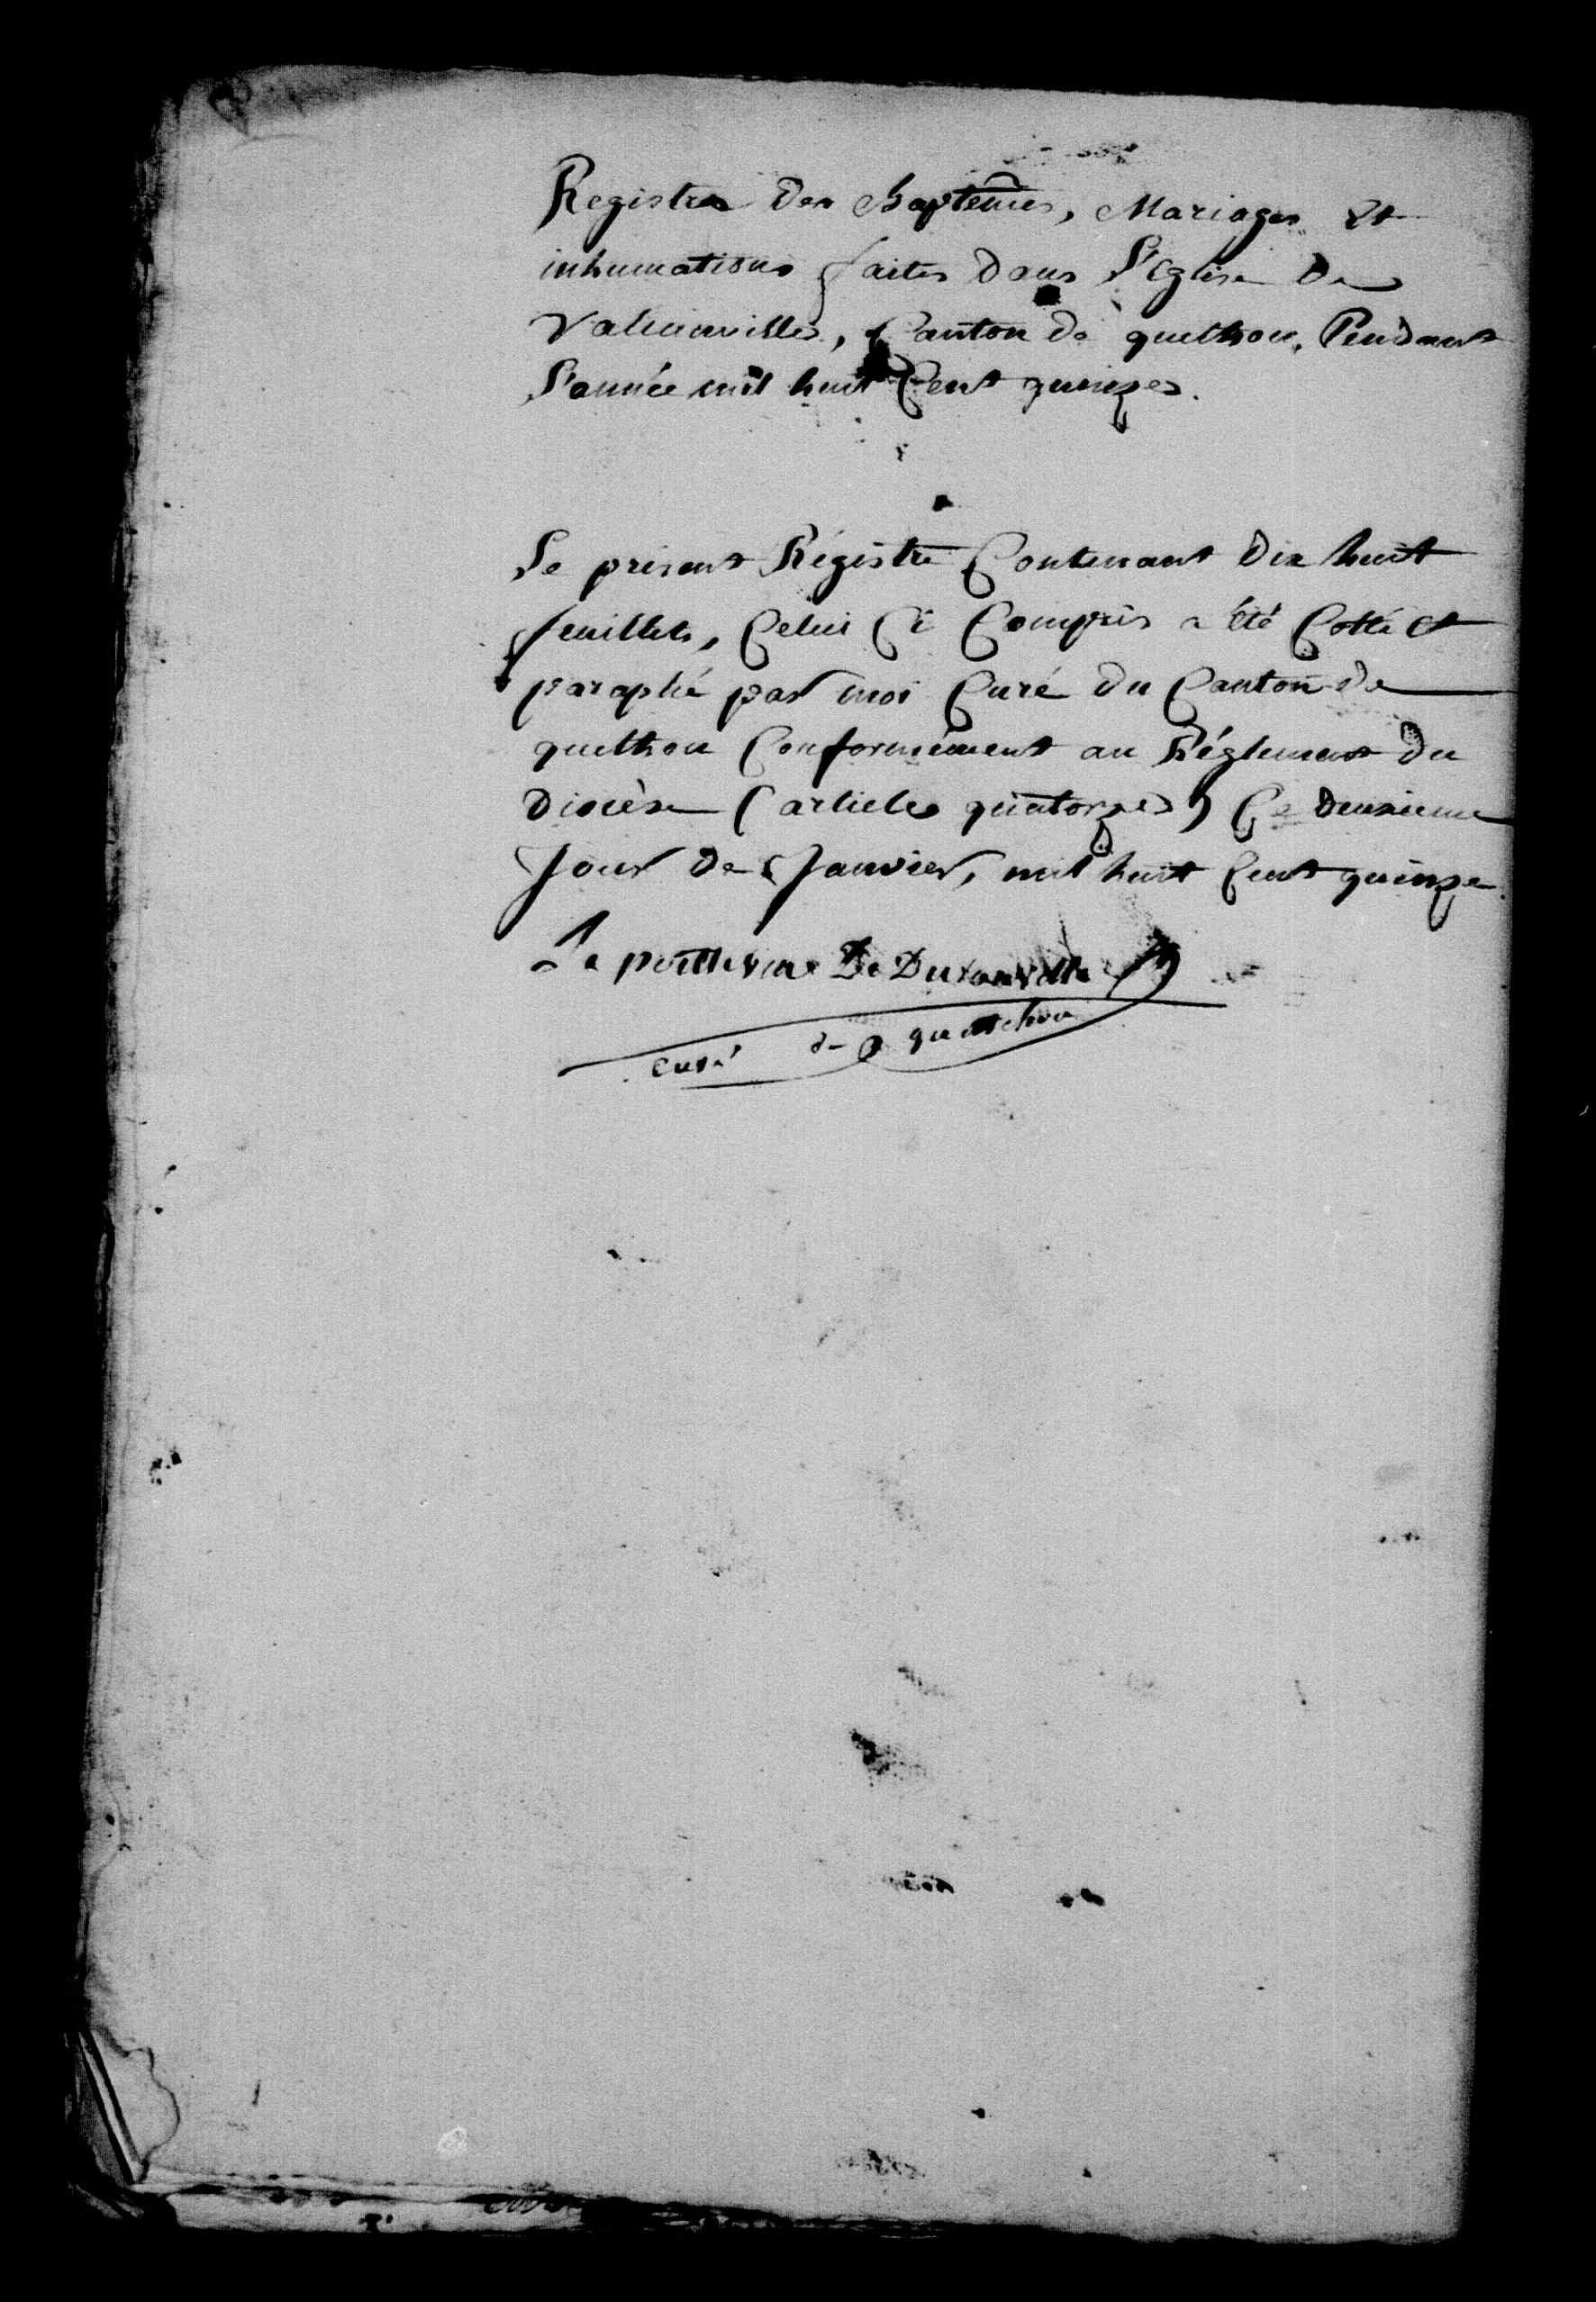 Registre des Baptêmes, Mariages et
inhumations faites dans l'Eglise de
Valcanville, Canton de quethou, Pendant
l'année mil huit Cent quinze.
Le présent Régistre Contenant dix huit
feuillets, Celui Ci Compris a été Cotté et
paraphé par moi Curé du Canton de
quethou Conformément au Réglement du
Diocèse (article quatorze) Ce deuxieme
Jour de Janvier, mil huit Cent quinze
Le poittevin De Duranville
curé de quettehou